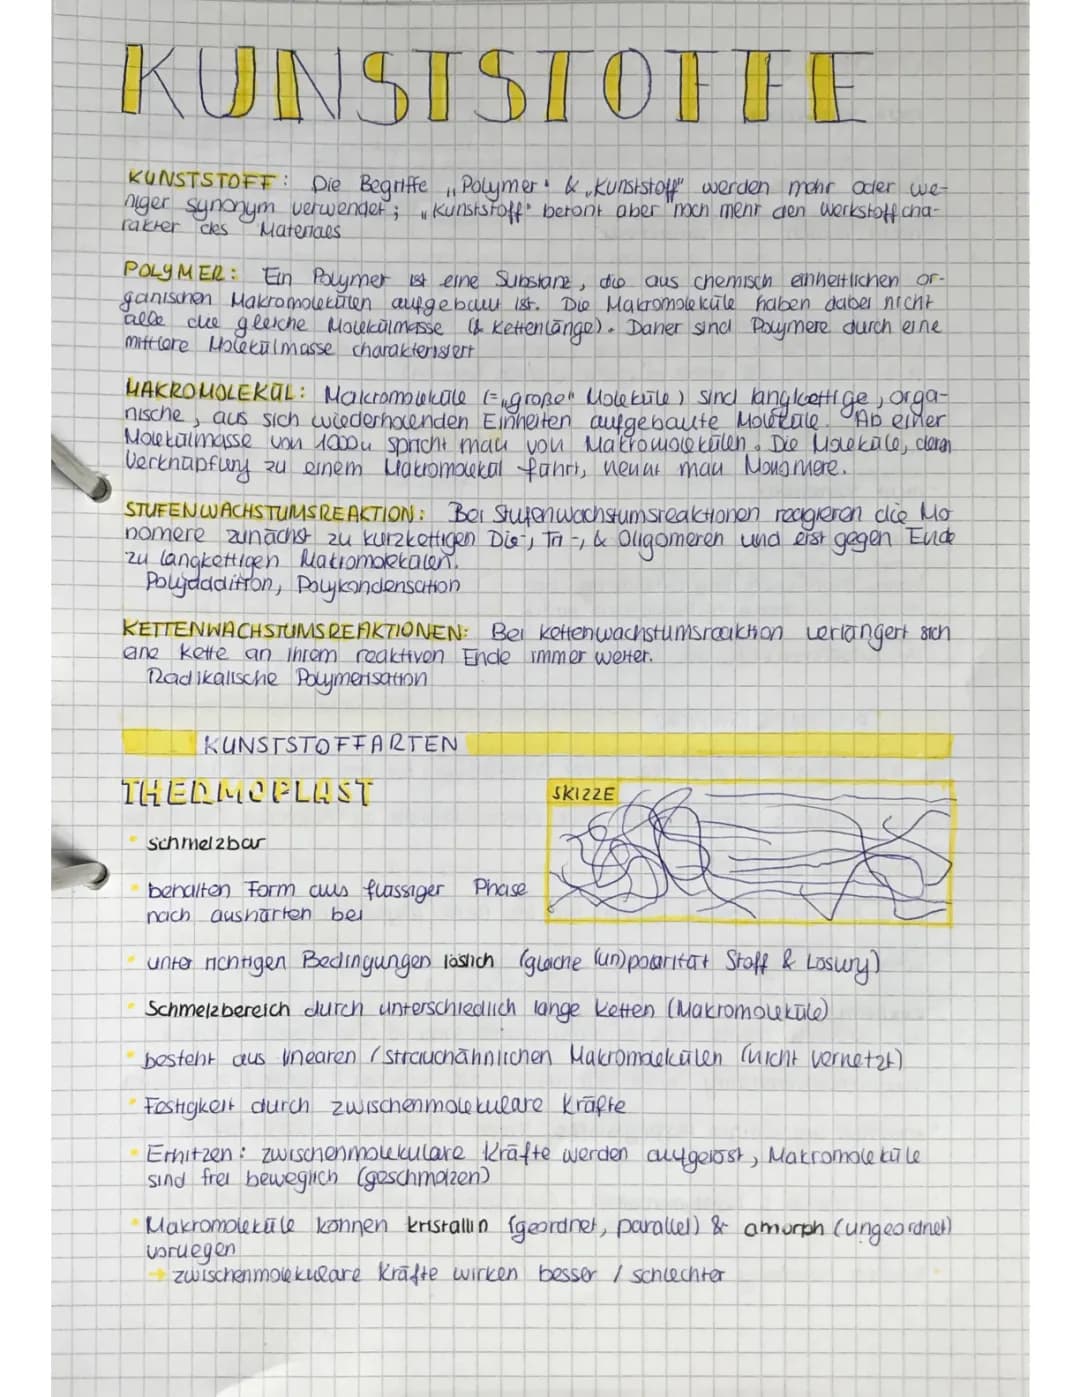 KUNSTSTOFFE
KUNSTSTOFF: Die Begriffe „Polymer" & „Kunststoff" werden mehr oder we-
niger synonym verwendet; „Kunststoff" betont aber noch mehr den Werkstoffcha-
rakter des Materiaes
POLYMER: Ein Polymer ist eine Substanz, die aus chemisch einheitlichen or-
ganischen Makromolekülen aufgebaut ist. Die Makromoleküle haben dabei nicht
alle die gleiche Molekülmasse (& Kettenlänge). Daher sind Polymere durch eine
mittlere Molekülmasse charakterisiert
MAKROMOLEKÜL: Makromoleküle (=„große" Moleküle) sind langkettige, orga-
nische, aus sich wiederholenden Einheiten aufgebaute Moleküle. Ab einer
Molekülmasse von 1000u spricht man von Makromolekülen. Die Moleküle, deren
Verknüpfung zu einem Makromolekül führt, nennt man Monomere.
STUFENWACHSTUMSREAKTION: Bei Stufenwachstumsreaktionen reagieren die Mo
nomere zunächst zu kurzkettigen Die-, Tri-, & Oligomeren und erst gegen Ende
zu langkettigen Makromolekülen.
Polyaddition, Polykondensation
KETTENWACHSTUMSREAKTIONEN: Bei Kettenwachstumsreaktion verlängert sich
eine Kette an ihrem reaktiven Ende immer weiter.
Radikalische Polymerisation
KUNSTSTOFFARTEN
THERMOPLAST
SKIZZE
• schmelzbar
• behalten Form aus flüssiger Phase
nach aushärten bei
• unter richtigen Bedingungen löslich (gleiche (un)polarität Stoff & Lösung)
• Schmelzbereich durch unterschiedlich lange Ketten (Makromoleküle)
• besteht aus linearen / strauchähnlichen Makromolekülen (nicht vernetzt)
• Festigkeit durch zwischenmolekulare Kräfte
• Erhitzen: zwischenmolekulare Kräfte werden aufgelöst, Makromoleküle
sind frei beweglich (geschmolzen)
• Makromoleküle können kristallin (geordnet, parallel) & amorph (ungeordnet)
vorliegen
→ zwischenmolekulare Kräfte wirken besser / schlechter